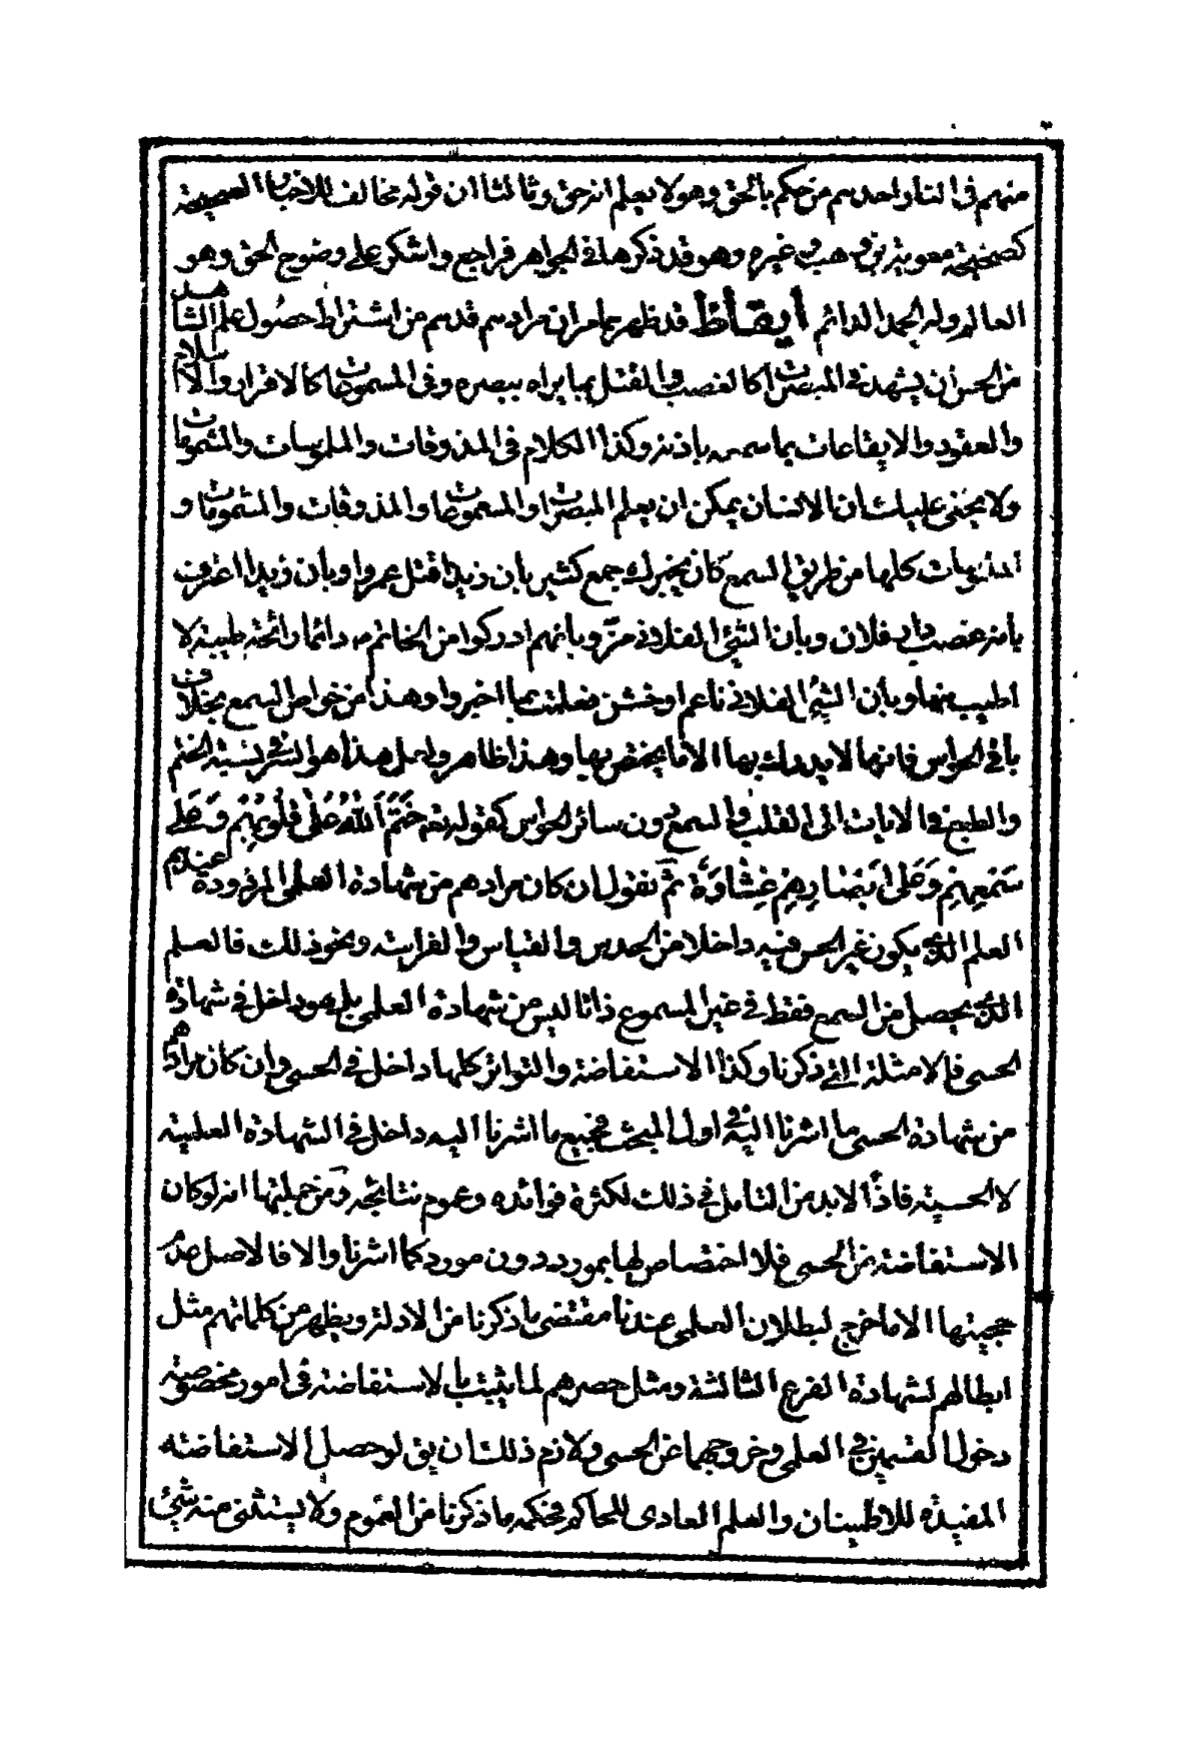 منهم فى النار واحدهم من حكم بالحق وهو لا يعلم انه حق وثالثا ان قوله مخالف للاخبار الصحيحة
كصحيحة معوية بن وهب وغيره وهو قد ذكرها فى الجواهر فراجع واشكر على وضوح الحق وهو
العالم وله الحمد الدائم أيقاظ قد ظهر مما مر ان مرادهم قدهم من اشتراط حصول علم الشاهد
من الحس ان يشهد فى المبصرات كالغصب والقتل بما يراه ببصره وفى المسموعات كالاقرار والاسلام
والعقود والايقاعات بما سمعه باذنه وكذا الكلام فى المذوقات والملموسات والمشمومات
ولا يخفى عليك ان الانسان يمكن ان يعلم المبصرات والمسموعات والمذوقات والمشمومات و
الملموسات كلها من طريق السمع كان يخبرك جمع كثير بان زيدا قتل عمروا وبان زيدا اعترف
بانه غصب دار فلان وبان الشيئ الفلانى مر وبانهم ادركوا من الخاتم دائما رائحة طيبة لا
اطيب منها وبان الشيئ الفلانى ناعم او خشن فعلمت بما اخبروا وهذا من خواص السمع بخلاف
باقى الحواس فانها لا يدرك بها الا ما يختص بها وهذا ظاهر ولعل هذا هو السر فى نسبة الختم
والطبع فى الايات الى القلب والسمع دون سائر الحواس كقوله تعه خَتَمَ اللهُ عَلَى قُلُوبِهِمْ وَعَلى
سَمْعِهِمْ وَعَلى اَبْصَارِهِمْ غِشَاوَةٌ ثم نقول ان كان مرادهم من شهادة العلمى المردودة عندهم
العلم الذى يكون غير الحس فيه داخلا من الحدس والقياس والقرابته ونحو ذلك فالعلم
الذى يحصل من السمع فقط فى غير المسموع ذاتا ليس من شهادة العلمى بل هو داخل فى شهادة
الحسى فالامثلة التى ذكرنا وكذا الاستفاضة والتواتر كلها داخل فى الحسى وان كان مرادهم
من شهادة الحسى ما اشرنا اليه فى اول المبحث فجميع ما اشرنا اليه داخل فى الشهادة العلمية
لا الحسية فاذًا لابد من التامل فى ذلك لكثرة فوائده وعموم نتائجه ومن جملتها انه لو كان
الاستفاضة من الحسى فلا اختصاص لها بمورد دون مورد كما اشرنا والا فالاصل عدم
حجيتها الا ما خرج لبطلان العلمى عندنا مقتضى ما ذكرنا من الادلة ويظهر من كلماتهم مثل
ابطالهم لشهادة الفرع الثالثة ومثل حصرهم لما يثبت بالاستفاضة فى امور مخصوصة
دخول القسمين فى العلمى وخروجهما عن الحسى ولازم ذلك ان يق لو حصل الاستفاضة
المفيدة للاطمينان والعلم العادى للحاكم فحكمه ما ذكرنا من العموم ولا يستثنى منه شيئ